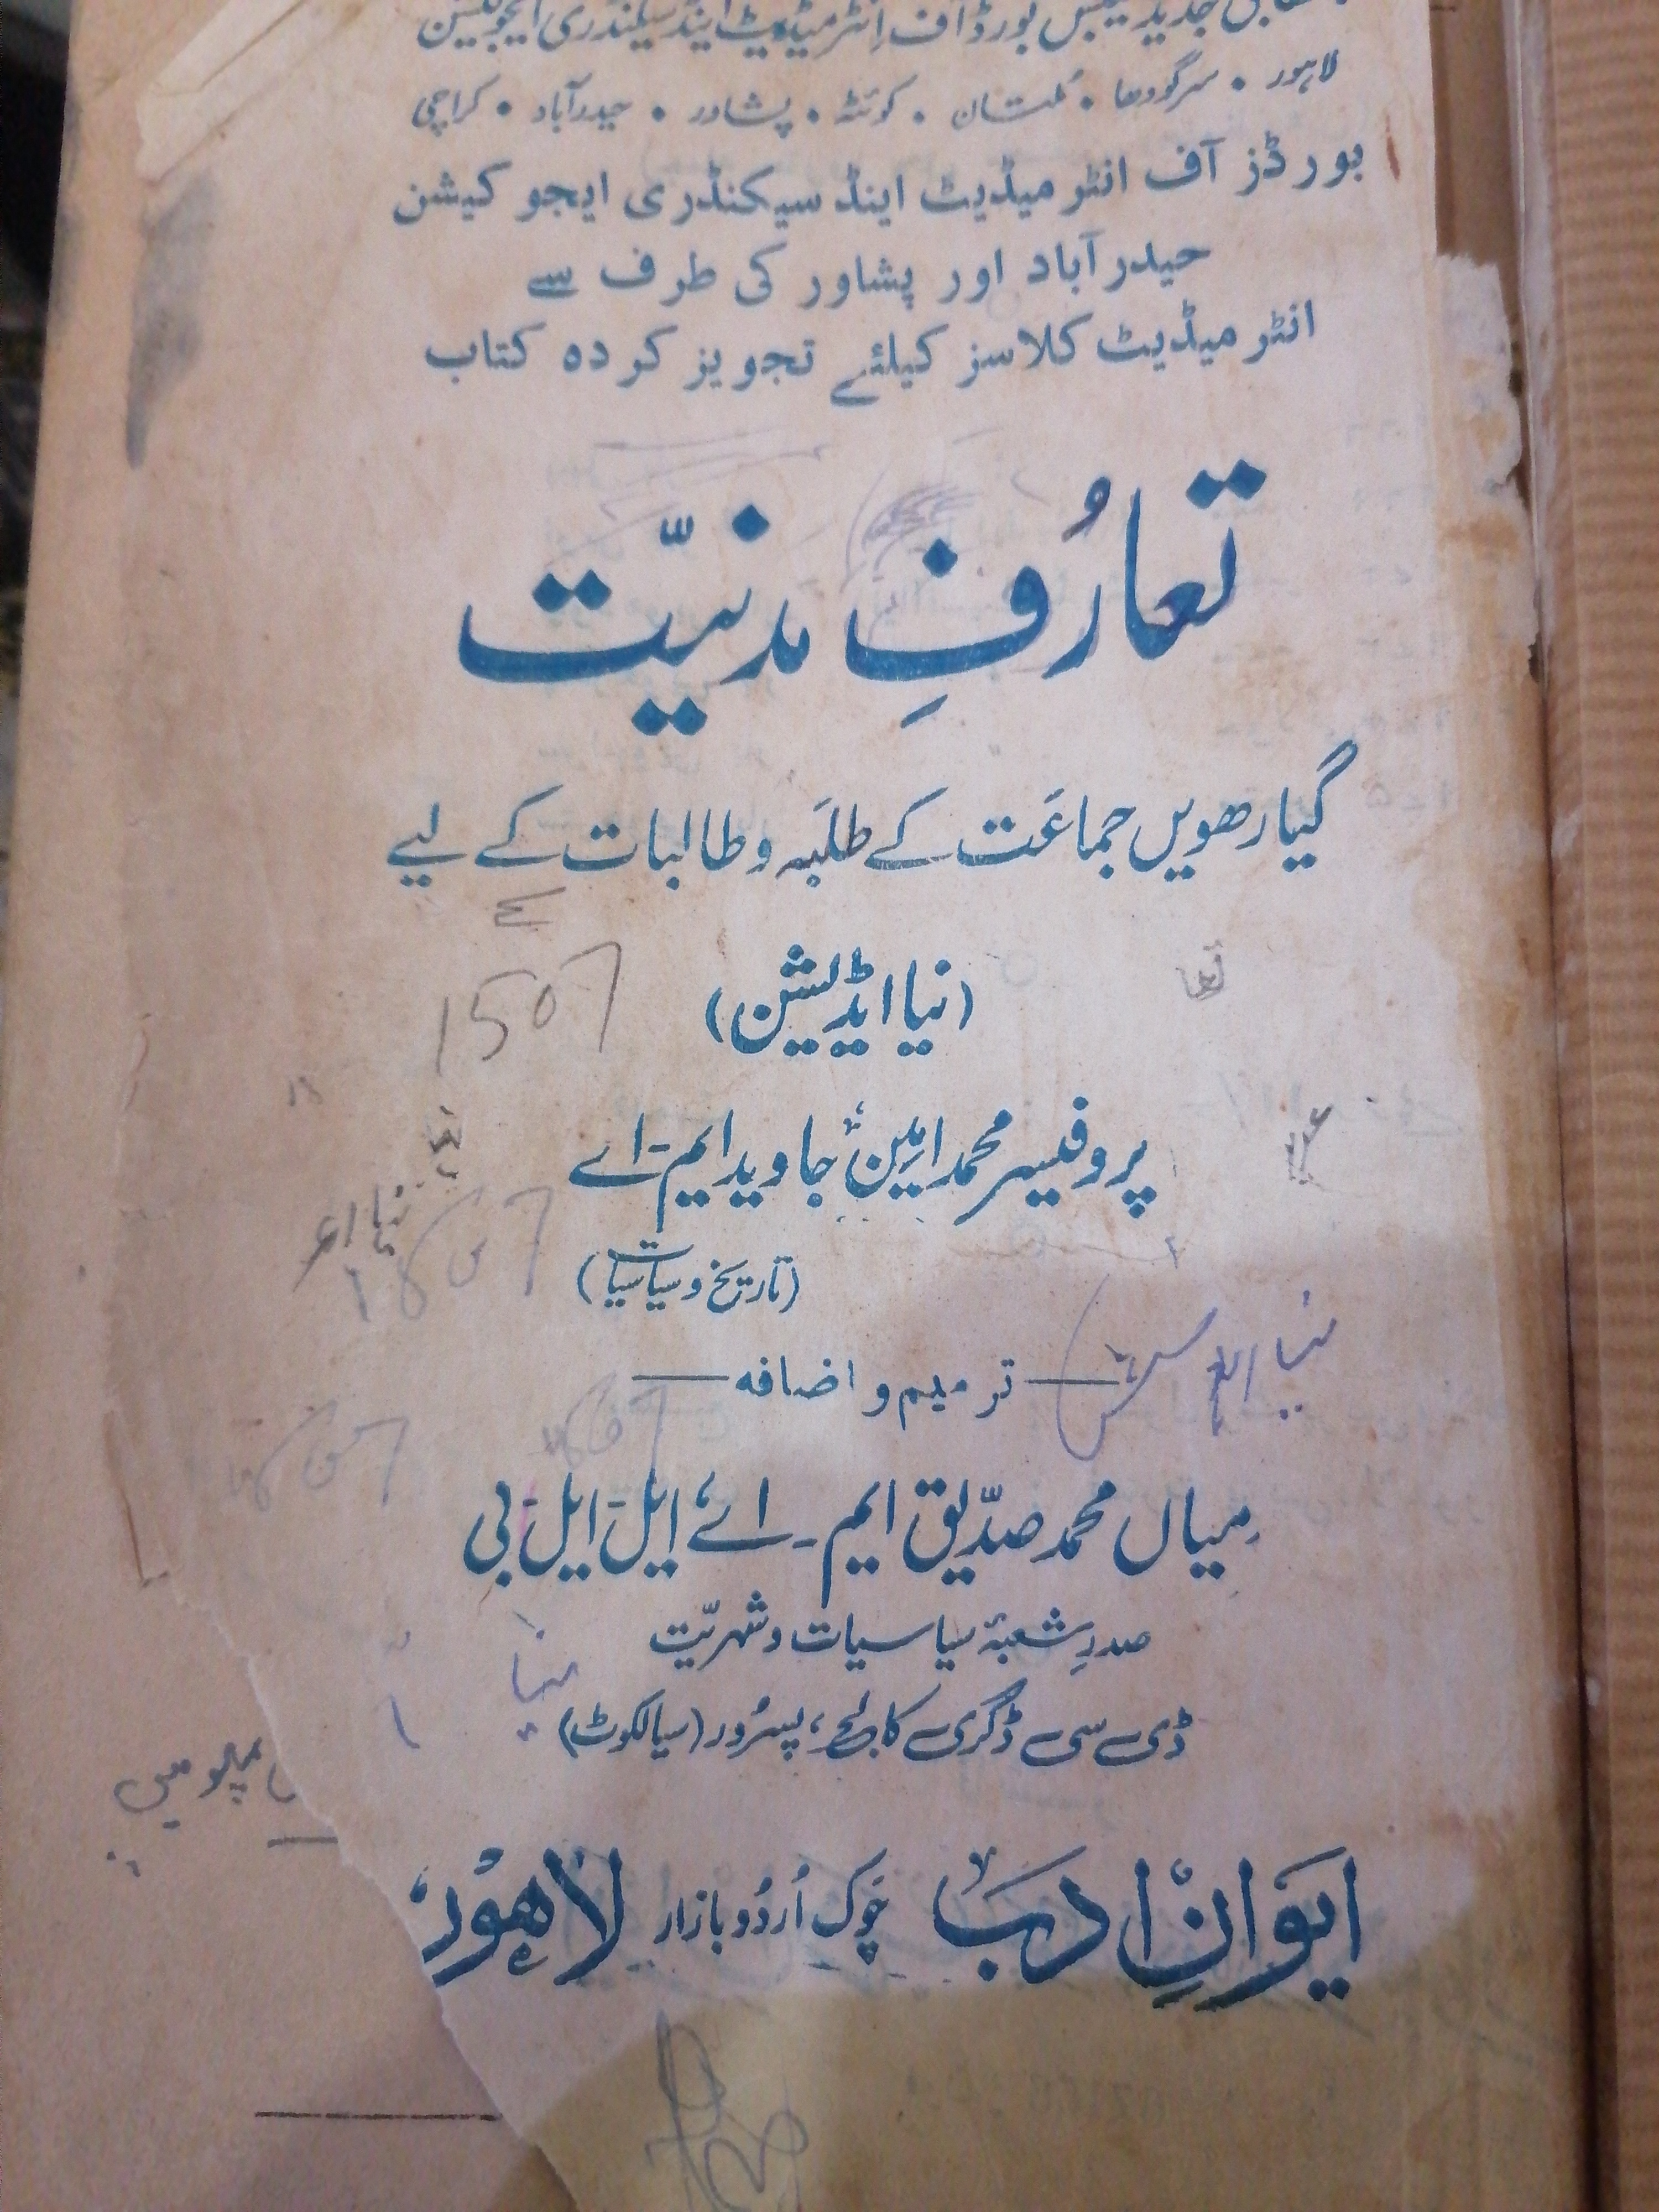 جدید سلیبس بورڈ آف انٹرمیڈیٹ اینڈ سیکنڈری ایجوکیشن
لاہور • سرگودھا • ملتان • کوئٹہ • پشاور • حیدرآباد • کراچی
بورڈز آف انٹر میڈیٹ اینڈ سیکنڈری ایجو کیشن
حیدر آباد اور پشاور کی طرف سے
انٹر میڈیٹ کلاسز کیلئے تجویز کردہ کتاب
تعارُفِ مدنیّت
گیارھویں جماعَت کے طلَبہ و طالبات کے لیے
(نیا ایڈیشن)
1507
پروفیسر محمد امین جاوید ایم-اے
(تاریخ و سیاسیات)
نیا
— ترمیم و اضافہ —
میاں محمد صدّیق ایم-اے، ایل-ایل-بی
صدرِ شعبۂ سیاسیات و شہریّت
نیا
ڈی سی ڈگری کالج، پسرُور (سیالکوٹ)
پہلو میں
ایوانِ ادب چوک اُردُو بازار لاہور